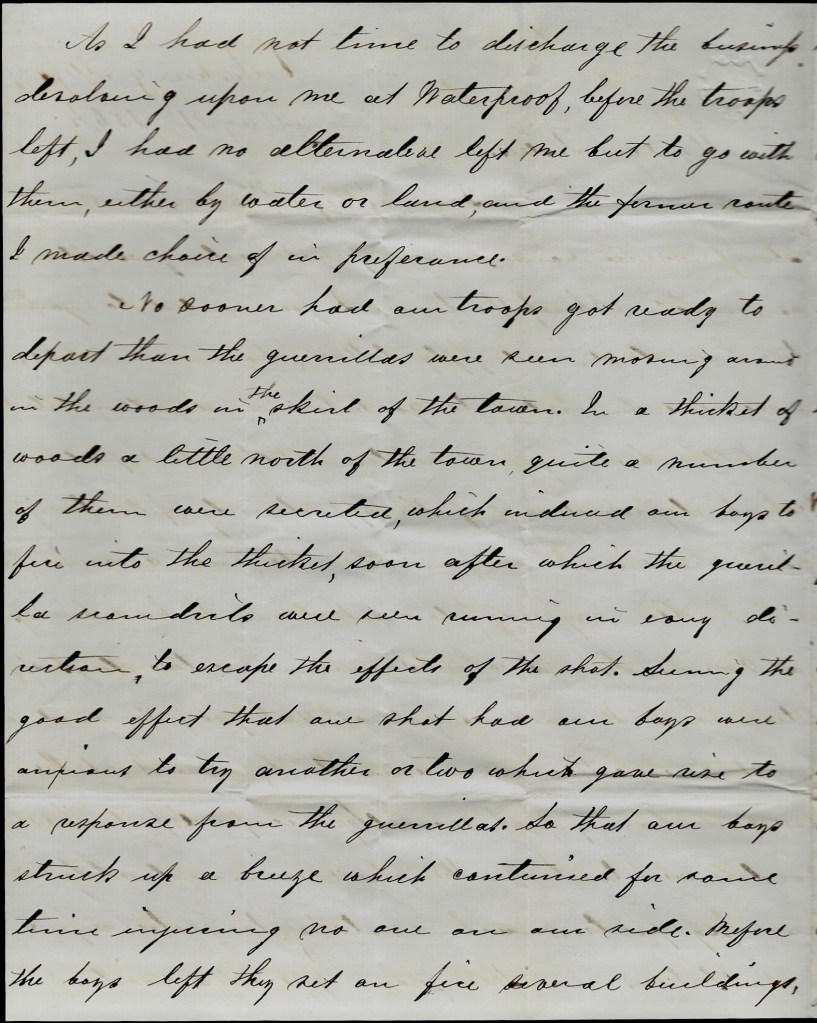 As I had not time to discharge the business
devolving upon me at Waterproof, before the troops
left, I had no alternative left me but to go with
them, either by water or land, and the former route
I made choice of in preferance.
No sooner had our troops got ready to
depart than the guerrillas were seen moving around
in the woods in the skirt of the town. In a thicket of
woods a little north of the town, quite a number
of them were secreted, which induced our boys to
fire into the thicket, soon after which the gueril-
la scoundrils were seen running in evry di-
rection, to escape the effects of the shot. Seeing the
good effect that one shot had our boys were
anxious to try another or two which gave rise to
a response from the guerrillas. So that our boys
struck up a breeze which continued for some
time injuring no one on our side. Before
the boys left they set on fire several buildings,